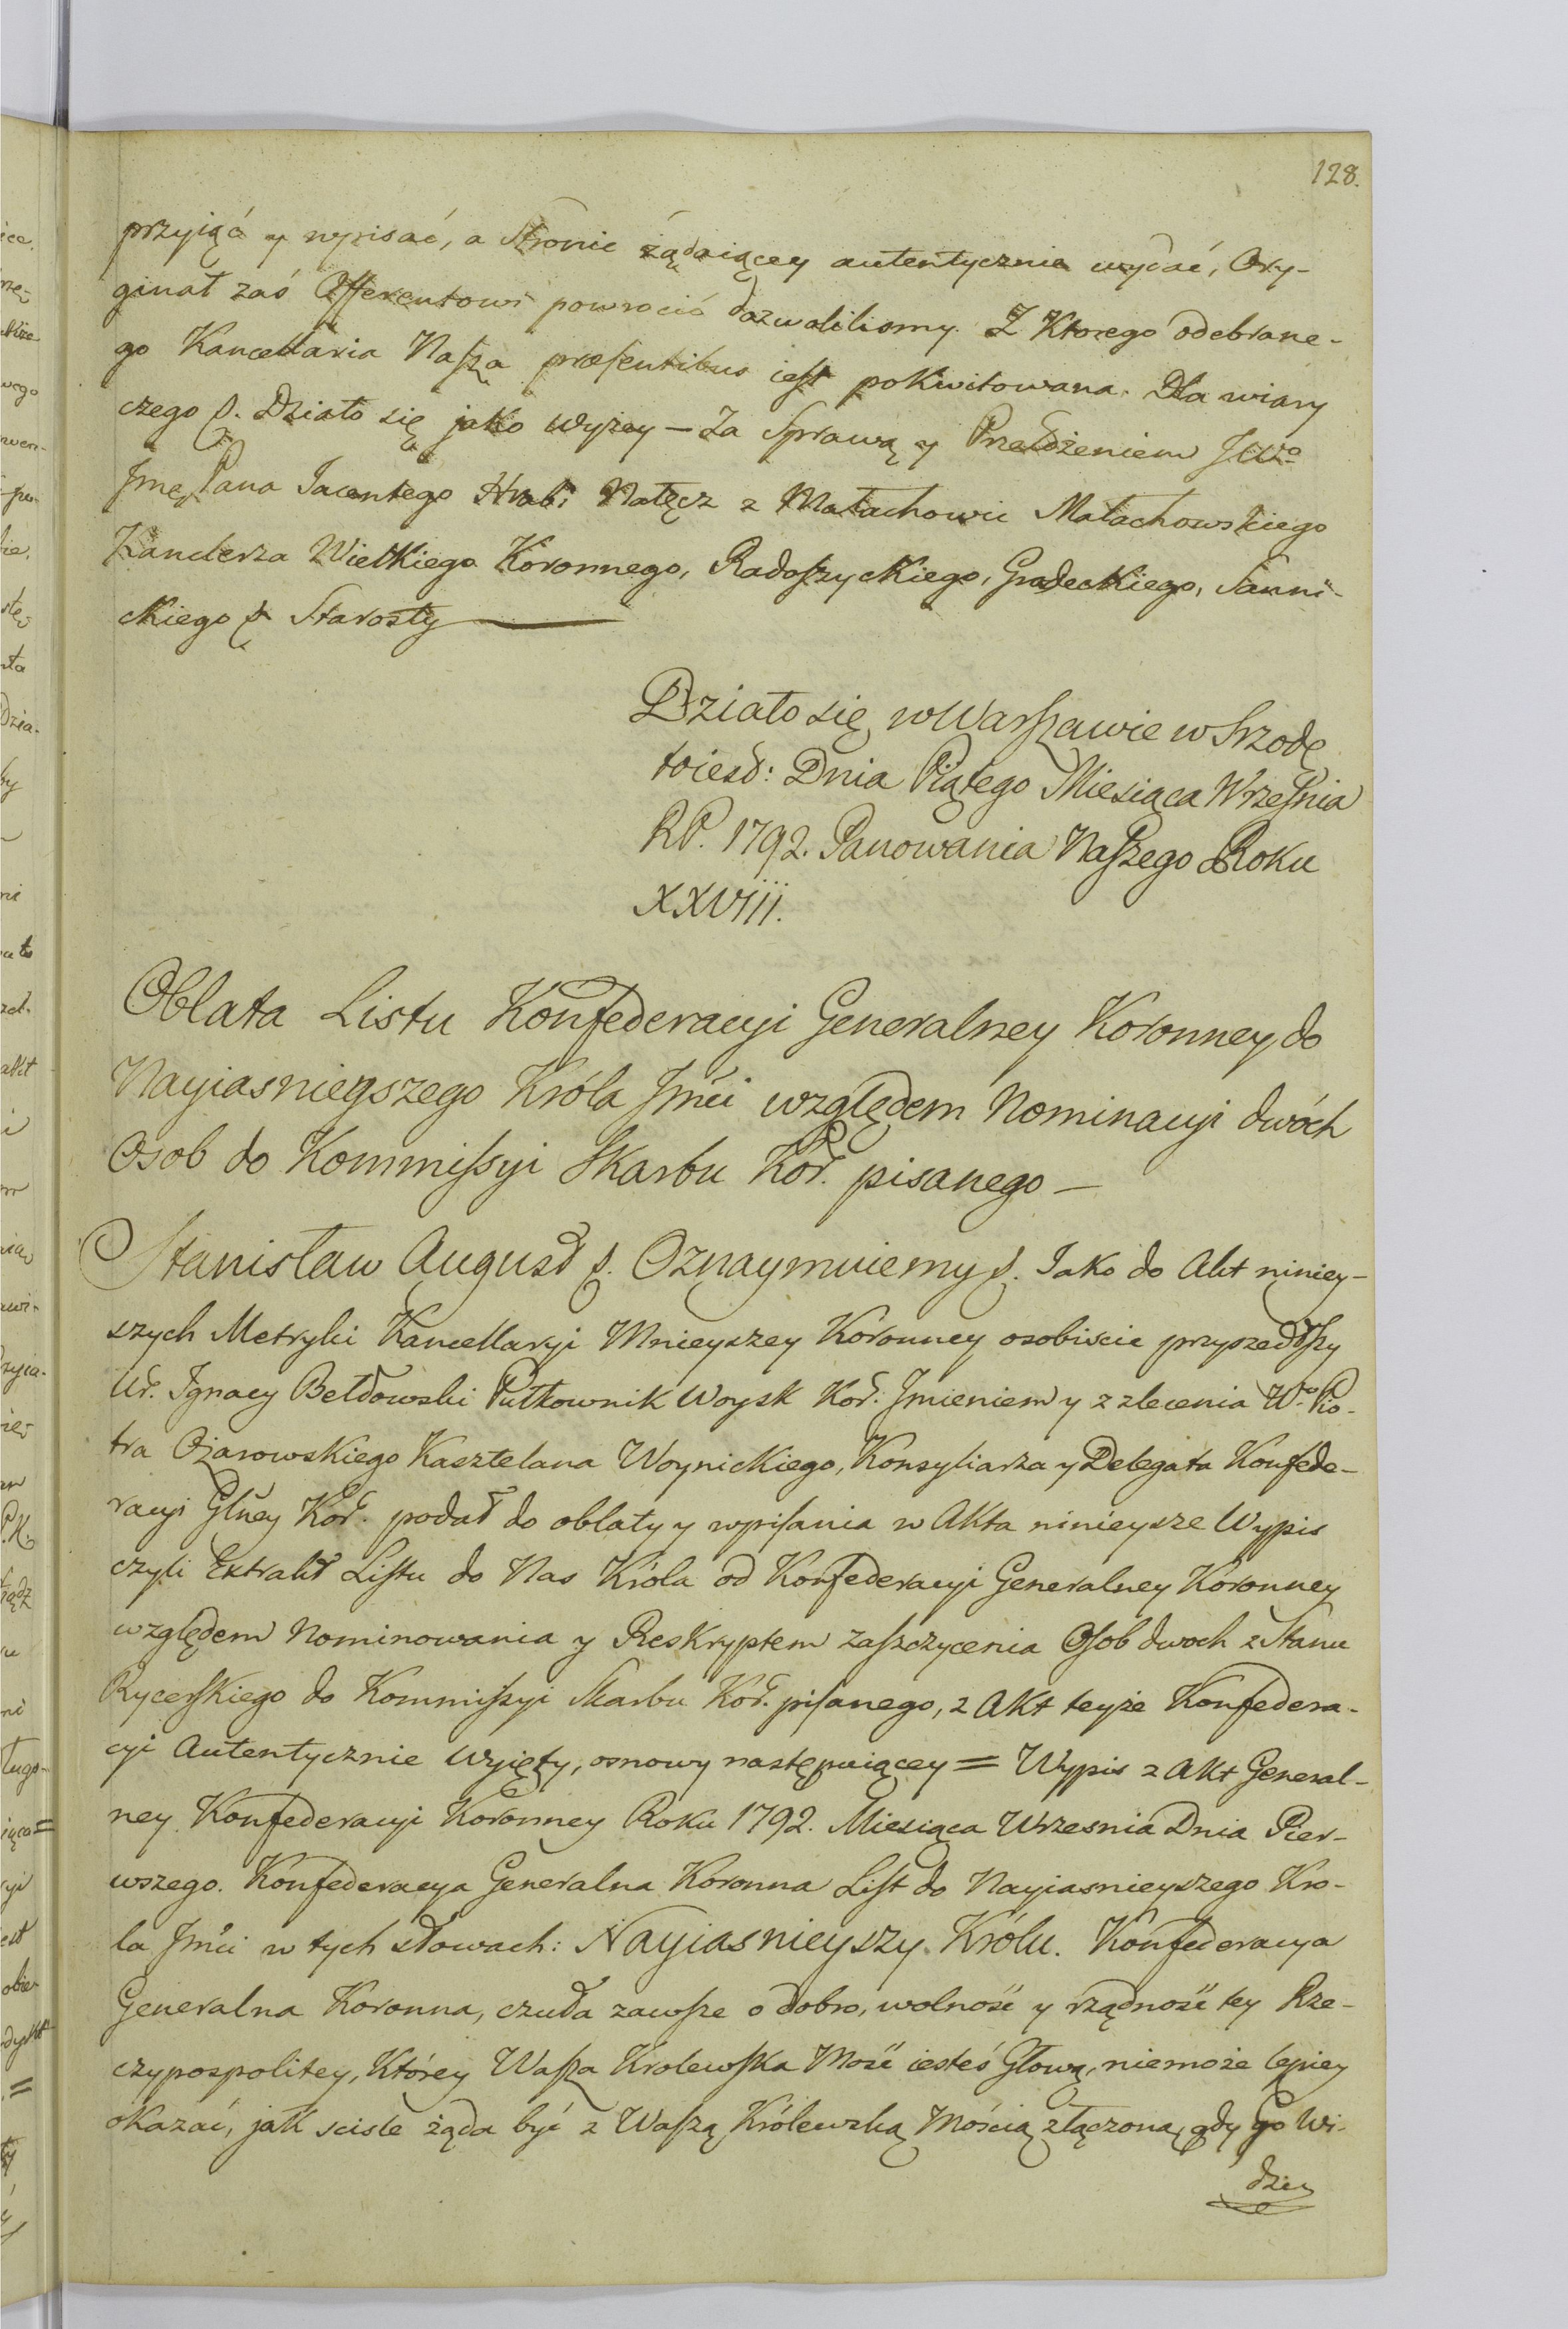 128.
przyiąć y wpisać, a Stronie żądaiącey autentycznie wydać, Ory-
ginał zaś Offerentowi powrocić dozwolilismy. Z Ktorego odebrane-
go Kancellaria Nasza præsentibus iest pokwitowana. Dla wiary
czego &. Działo się jako wyżey – Za Sprawą y Przełożeniem JWo
Jmę Pana Iacentego Hrabi Nałęcz z Małachowic Małachowskiego
Kanclerza Wielkiego Koronnego, Radoszyckiego, Grodeckiego, Sanni-
ckiego & Starosty
Działo się w Warszawie w Srzodę
toiest: Dnia Piątego Miesiąca Wrzesnia
RP. 1792. Panowania Naszego Roku
XXVIII.
Oblata Listu Konfederacyi Generalney Koronney do
Nayiasnieyszego Króla Jmći względem Nominacyi dwóch
Osob do Kommissyi Skarbu Kor. pisanego –
Stanisław August &. Oznaymuiemy &. Iako do Akt niniey-
szych Metryki Kancellaryi Mnieyszey Koronney osobiscie przyszedłszy
Ur. Ignacy Bełdowski Pułkownik Woysk Kor. Jmieniem y z zlecenia Wo Pio-
tra Ożarowskiego Kasztelana Woynickiego, Konsyliarza y Delegata Konfede-
racyi Glney Kor. podał do oblaty y wpisania w Akta ninieysze Wypis
czyli Extrakt Listu do Nas Króla od Konfederacyi Generalney Koronney
względem Nominowania y Reskryptem zaszczycenia Osob dwoch z Stanu
Rycerskiego do Kommissyi Skarbu Kor. pisanego, z Akt teyże Konfedera-
cyi Autentycznie wyięty, osnowy następuiącey = Wypis z Akt General-
ney Konfederacyi Koronney Roku 1792. Miesiąca Wrzesnia Dnia Pier-
wszego. Konfederacya Generalna Koronna List do Nayiasnieyszego Kro-
la Jmći w tych słowach: Nayiasnieyszy Królu. Konfederacya
Generalna Koronna, czuła zawsze o dobro, wolność y rządność tey Rze-
czypospolitey, Którey Wasza Krolewska Mość iesteś Głową, niemoże lepiey
okazać, jak scisle żąda być z Waszą Królewską Mością złączona, gdy Go Wi-
dzieć